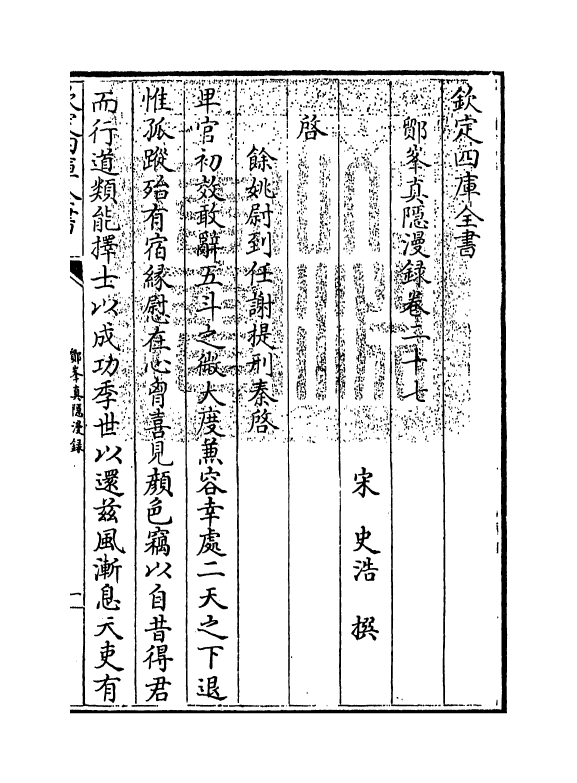 欽定四庫全書
鄮峯真隠漫録卷二十七
宋 史浩 撰
啓
餘姚尉到任謝提刑秦啓
卑官初效敢辭五斗之微大度兼容幸處二天之下退
惟孤蹤殆有宿緣慰在心胷喜見顏色竊以自昔得君
而行道類能擇士以成功季世以還兹風漸息天吏有
欽定四庫全書
鄮峯真隠漫録
一